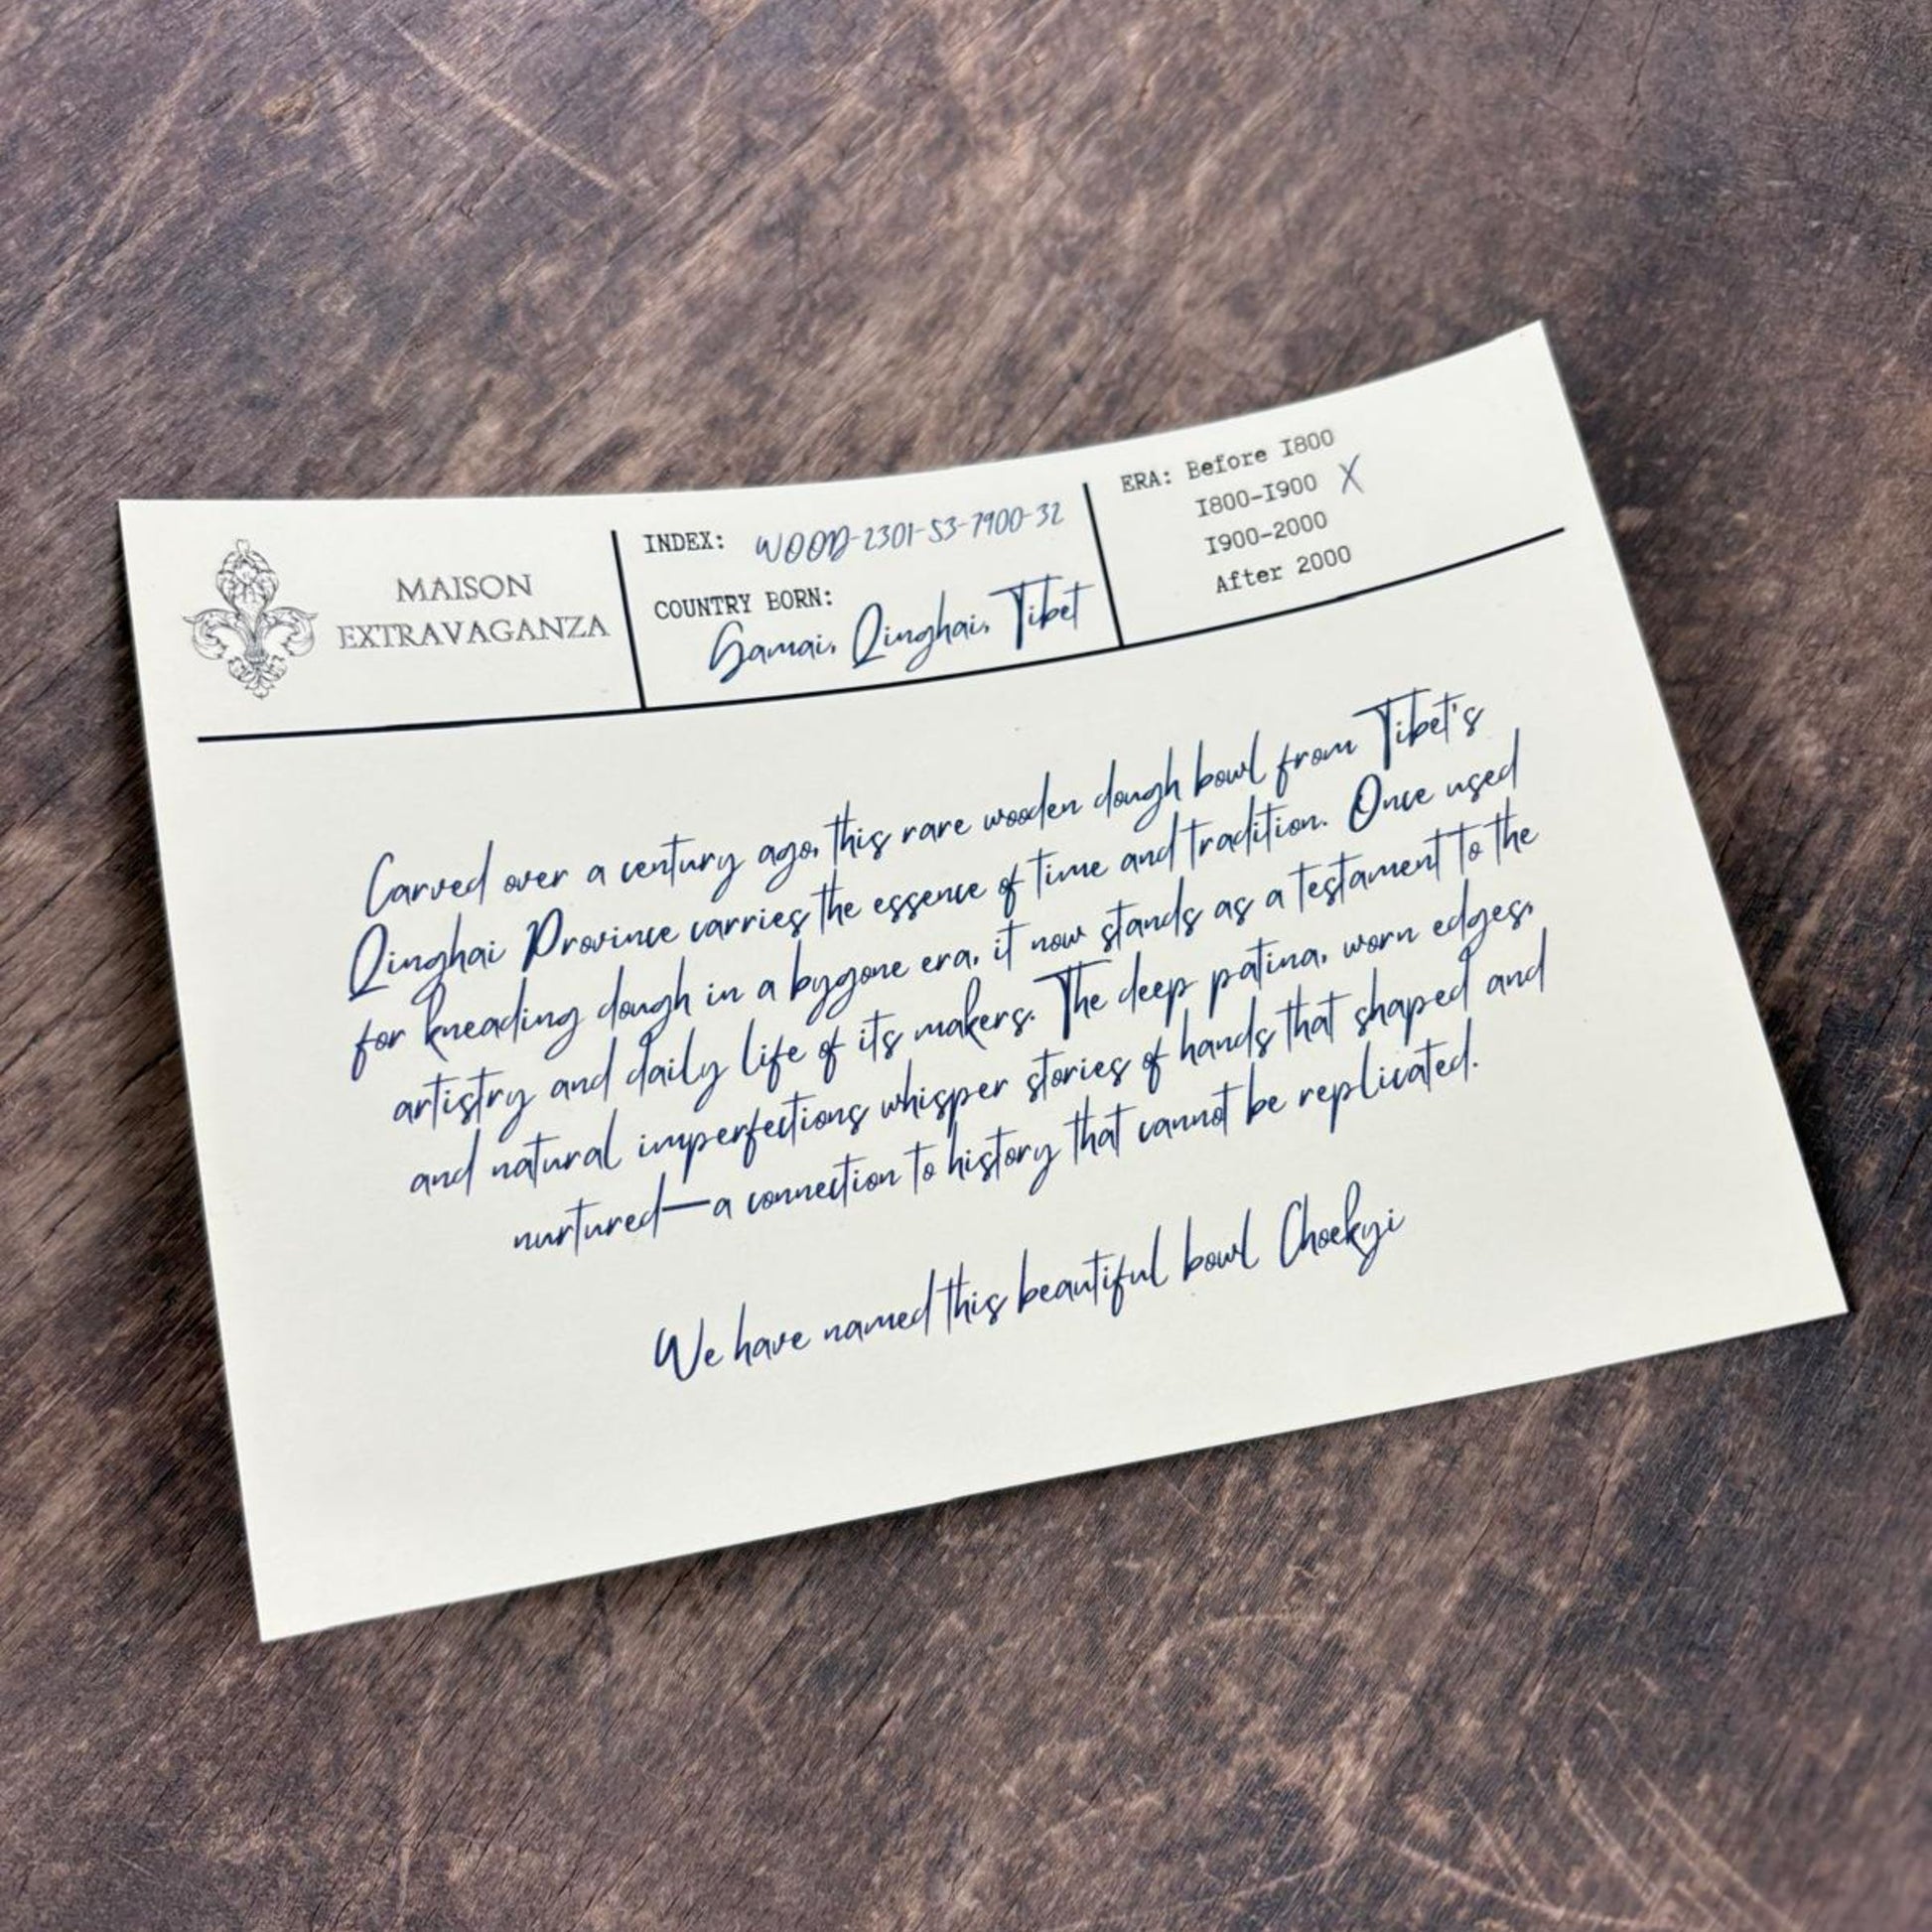 MAISON
EXTRAVAGANZA
INDEX: WOOD-2301-S3-7900-32
COUNTRY BORN:
Gamai, Qinghai, Tibet
ERA: Before I800
I800-I900 X
I900-2000
After 2000
Carved over a century ago, this rare wooden dough bowl from Tibet's
Qinghai Province carries the essence of time and tradition. Once used
for kneading dough in a bygone era, it now stands as a testament to the
artistry and daily life of its makers. The deep patina, worn edges,
and natural imperfections whisper stories of hands that shaped and
nurtured—a connection to history that cannot be replicated.
We have named this beautiful bowl Choekyi